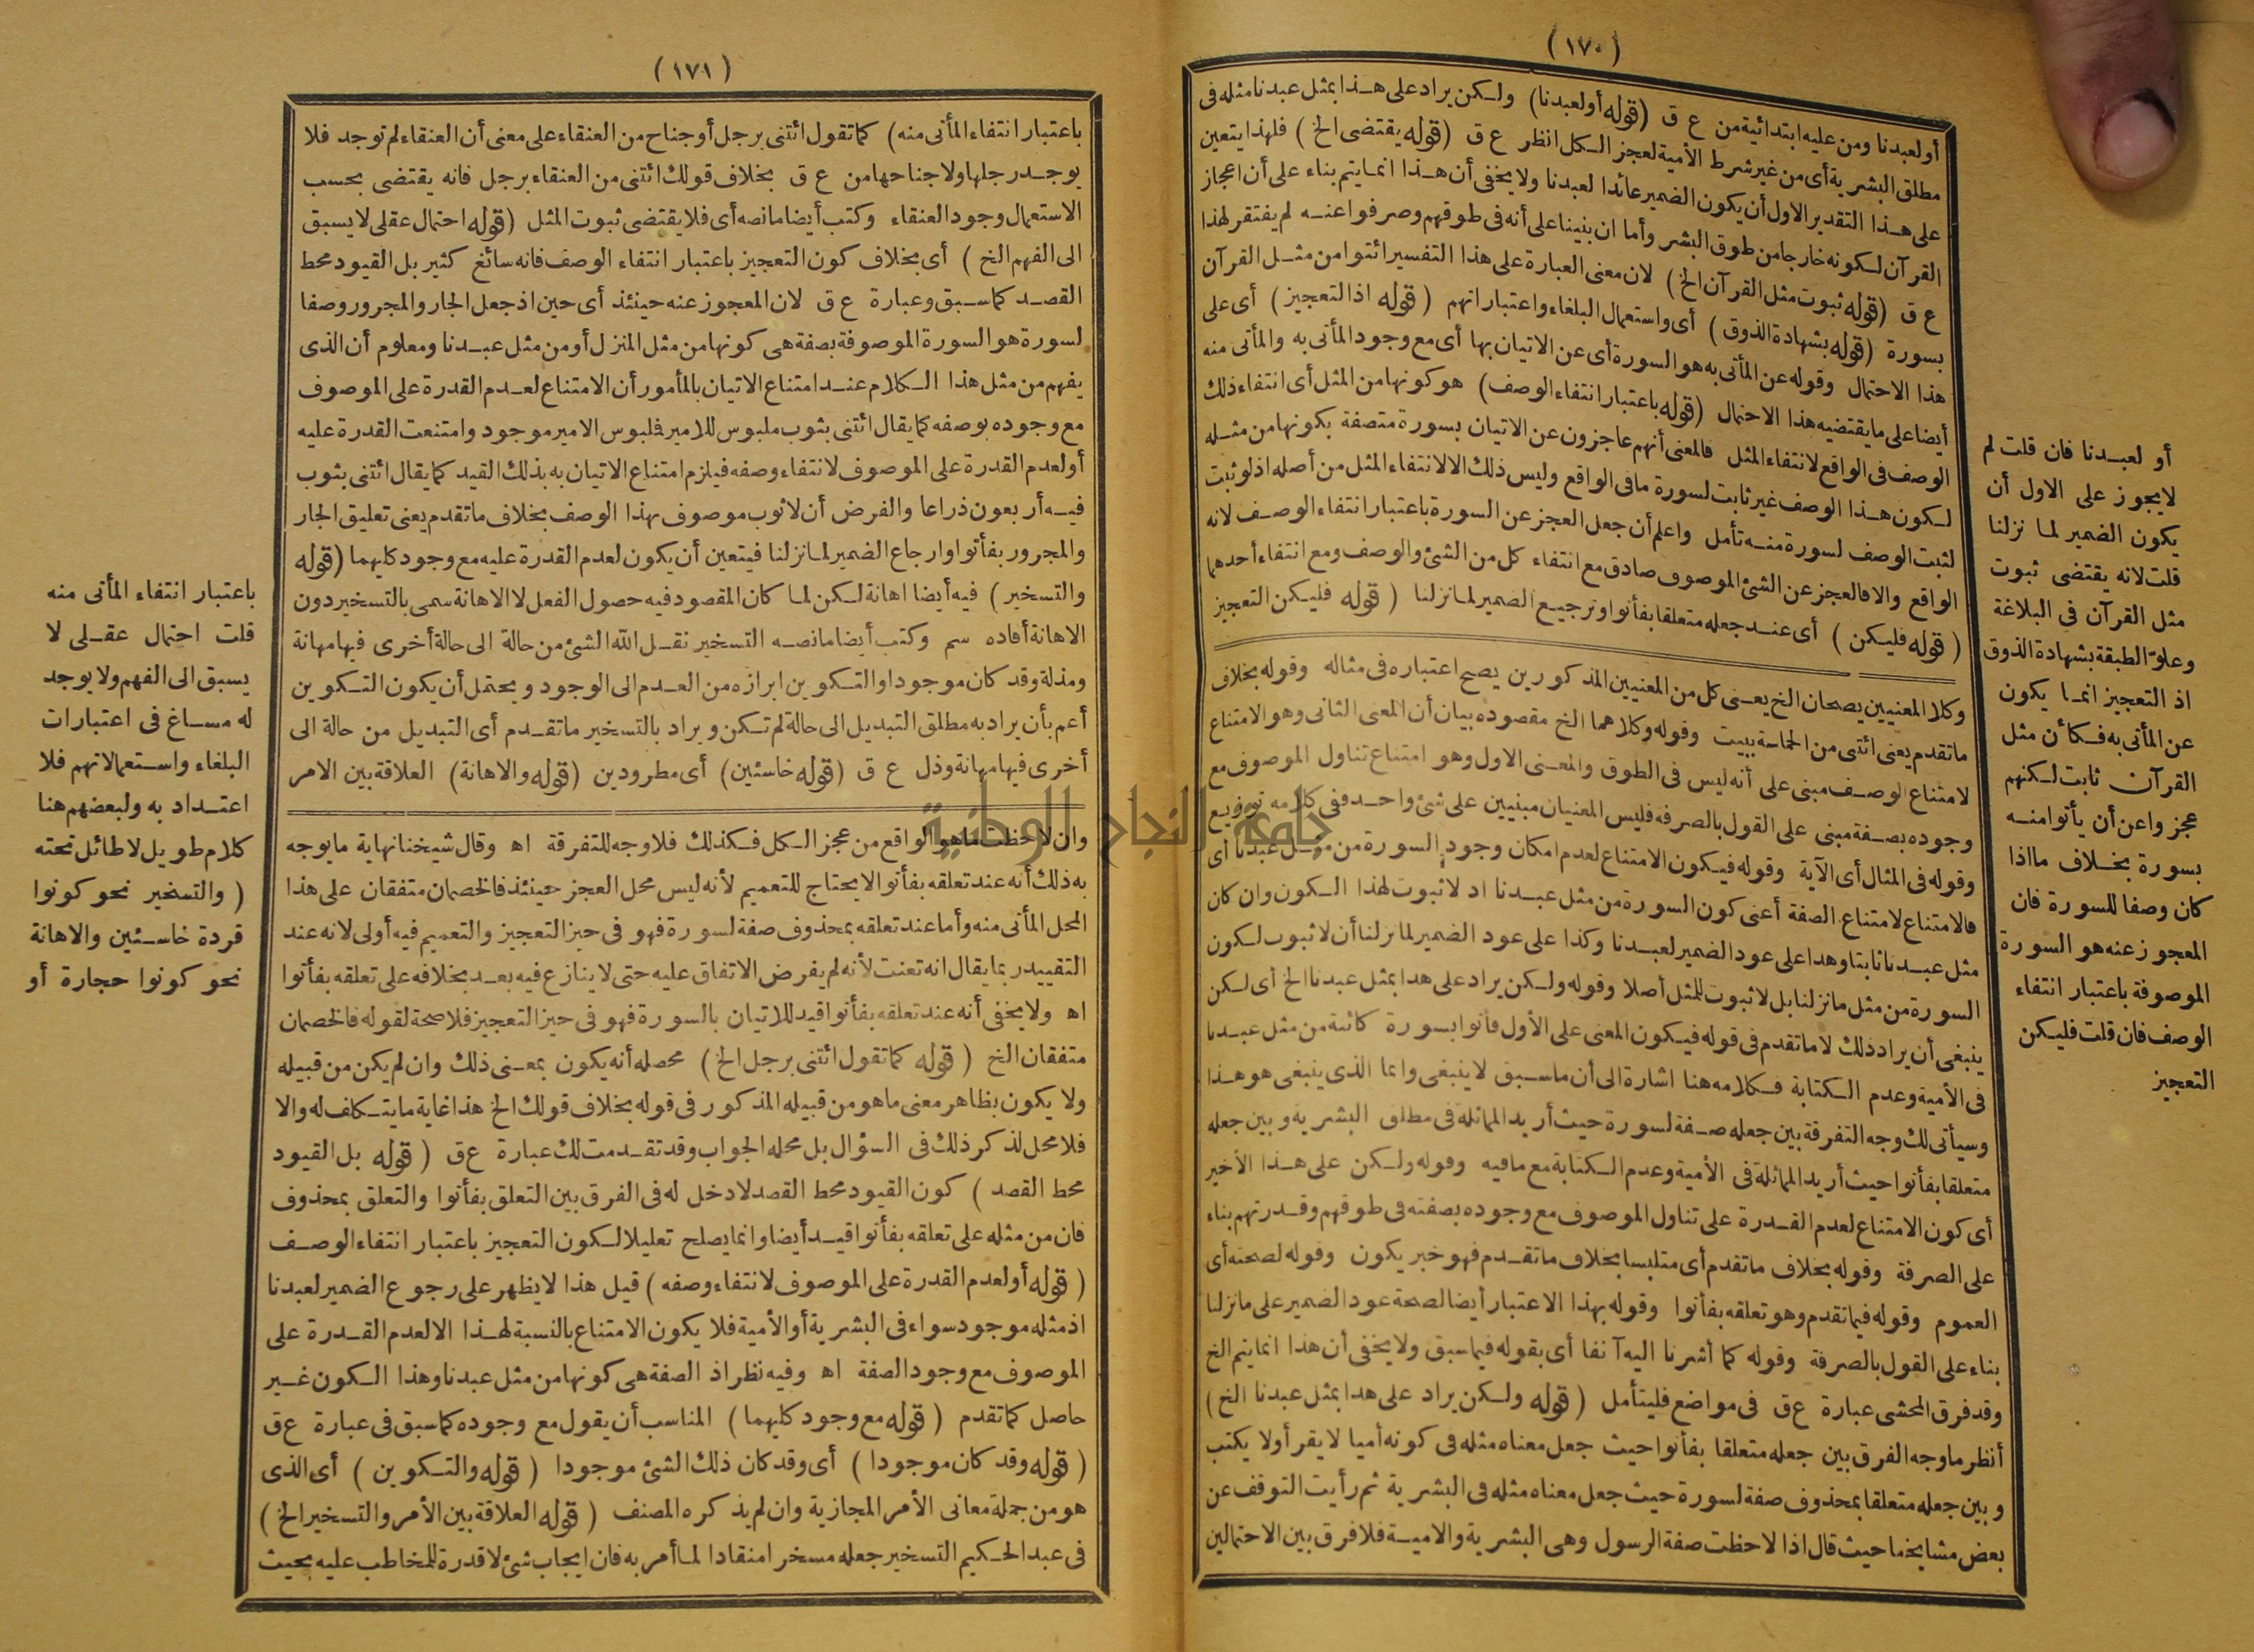 (١٧٠)
أولعبدنا ومن عليه ابتدائية من ع ق (قوله أولعبدنا) ولكن يراد على هذا بمثل عبدنا مثله فى
مطلق البشرية أى من غير شرط الأمية لعجز الكل انظر ع ق (قوله يقتضى الخ) فلهذا يتعين
على هذا التقدير الاول أن يكون الضمير عائدا لعبدنا ولا يخفى أن هذا انما يتم بناء على أن اعجاز
القرآن لكونه خارجا من طوق البشر وأما ان بنينا على أنه فى طوقهم وصرفوا عنه لم يفتقر لهذا
ع ق (قوله ثبوت مثل القرآن الخ) لان معنى العبارة على هذا التفسير ائتوا من مثل القرآن
بسورة (قوله بشهادة الذوق) أى واستعمال البلغاء واعتباراتهم (قوله اذ التعجيز) أى على
هذا الاحتمال وقوله عن المأتى به هو السورة أى عن الاتيان بها أى مع وجود المأتى به والمأتى منه
أيضا على ما يقتضيه هذا الاحتمال (قوله باعتبار انتفاء الوصف) هو كونها من المثل أى انتفاء ذلك
الوصف فى الواقع لانتفاء المثل فالمعنى أنهم عاجزون عن الاتيان بسورة متصفة بكونها من مثله
لكون هذا الوصف غير ثابت لسورة ما فى الواقع وليس ذلك الا لانتفاء المثل من أصله اذ لو ثبت
لثبت الوصف لسورة منه تأمل واعلم أن جعل العجز عن السورة باعتبار انتفاء الوصف لانه
الواقع والا فالعجز عن الشئ الموصوف صادق مع انتفاء كل من الشئ والوصف ومع انتفاء أحدهما
(قوله فليكن) أى عند جعله متعلقا بفأتوا وترجيع الضمير لما نزلنا (قوله فليكن التعجيز
وكلا المعنيين يصحان الخ يعنى كل من المعنيين المذكورين يصح اعتباره فى مثاله وقوله بخلاف
ما تقدم يعنى ائتنى من الحماسة ببيت وقوله وكلاهما الخ مقصوده بيان أن المعنى الثانى وهو الامتناع
لامتناع الوصف مبنى على أنه ليس فى الطوق والمعنى الاول وهو امتناع تناول الموصوف مع
وجوده بصفة مبنى على القول بالصرفة فليس المعنيان مبنيين على شئ واحد ففى كلامه توزيع
وقوله فى المثال أى الآية وقوله فيكون الامتناع لعدم امكان وجود السورة من مثل عبدنا أى
فالامتناع لامتناع الصفة أعنى كون السورة من مثل عبدنا اذ لا ثبوت لهذا الكون وان كان
مثل عبدنا ثابتا وهذا على عود الضمير لعبدنا وكذا على عود الضمير لما نزلنا أن لا ثبوت لكون
السورة من مثل ما نزلنا بل لا ثبوت للمثل أصلا وقوله ولكن يراد على هذا بمثل عبدنا الخ أى لكن
ينبغى أن يراد ذلك لا ما تقدم فى قوله فيكون المعنى على الأول فأتوا بسورة كائنة من مثل عبدنا
فى الأمية وعدم الكتابة فكلامه هنا اشارة الى أن ما سبق لا ينبغى وانما الذى ينبغى هو هذا
وسيأتى لك وجه التفرقة بين جعله صفة لسورة حيث أريد المماثلة فى مطلق البشرية وبين جعله
متعلقا بفأتوا حيث أريد المماثلة فى الأمية وعدم الكتابة مع ما فيه وقوله ولكن على هذا الأخير
أى كون الامتناع لعدم القدرة على تناول الموصوف مع وجوده بصفته فى طوقهم وقدرتهم بناء
على الصرفة وقوله بخلاف ما تقدم أى متلبسا بخلاف ما تقدم فهو خبر يكون وقوله لصحته أى
العموم وقوله فيما تقدم وهو تعلقه بفأتوا وقوله بهذا الاعتبار أيضا لصحة عود الضمير على ما نزلنا
بناء على القول بالصرفة وقوله كما أشرنا اليه آنفا أى بقوله فيما سبق ولا يخفى أن هذا انما يتم الخ
وقد فرق المحشى عبارة ع ق فى مواضع فليتأمل (قوله ولكن يراد على هذا بمثل عبدنا الخ)
أنظر ما وجه الفرق بين جعله متعلقا بفأتوا حيث جعل معناه مثله فى كونه أميا لا يقرأ ولا يكتب
وبين جعله متعلقا بمحذوف صفة لسورة حيث جعل معناه مثله فى البشرية ثم رأيت التوقف عن
بعض مشايخنا حيث قال اذا لاحظت صفة الرسول وهى البشرية والامية فلا فرق بين الاحتمالين
أو لعبدنا فان قلت لم
لا يجوز على الاول أن
يكون الضمير لما نزلنا
قلت لانه يقتضى ثبوت
مثل القرآن فى البلاغة
وعلوّ الطبقة بشهادة الذوق
اذ التعجيز انما يكون
عن المأتى به فكأن مثل
القرآن ثابت لكنهم
عجزوا عن أن يأتوا منه
بسورة بخلاف ما اذا
كان وصفا للسورة فان
المعجوز عنه هو السورة
الموصوفة باعتبار انتفاء
الوصف فان قلت فليكن
التعجيز
(١٧١)
باعتبار انتفاء المأتى منه) كما تقول ائتنى برجل أو جناح من العنقاء على معنى أن العنقاء لم توجد فلا
يوجد رجلها ولا جناحها من ع ق بخلاف قولك ائتنى من العنقاء برجل فانه يقتضى بحسب
الاستعمال وجود العنقاء وكتب أيضا ما نصه أى فلا يقتضى ثبوت المثل (قوله احتمال عقلى لا يسبق
الى الفهم الخ) أى بخلاف كون التعجيز باعتبار انتفاء الوصف فانه سائغ كثير بل القيود محط
القصد كما سبق وعبارة ع ق لان المعجوز عنه حينئذ أى حين اذ جعل الجار والمجرور وصفا
لسورة هو السورة الموصوفة بصفة هى كونها من مثل المنزل أو من مثل عبدنا ومعلوم أن الذى
يفهم من مثل هذا الكلام عند امتناع الاتيان بالمأمور أن الامتناع لعدم القدرة على الموصوف
مع وجوده بوصفه كما يقال ائتنى بثوب ملبوس للامير فلبوس الامير موجود وامتنعت القدرة عليه
أو لعدم القدرة على الموصوف لانتفاء وصفه فيلزم امتناع الاتيان به بذلك القيد كما يقال ائتنى بثوب
فيه أربعون ذراعا والفرض أن لا ثوب موصوف بهذا الوصف بخلاف ما تقدم يعنى تعليق الجار
والمجرور بفأتوا وارجاع الضمير لما نزلنا فيتعين أن يكون لعدم القدرة عليه مع وجود كليهما (قوله
والتسخير) فيه أيضا اهانة لكن لما كان المقصود فيه حصول الفعل لا الاهانة سمى بالتسخير دون
الاهانة أفاده سم وكتب أيضا ما نصه التسخير نقل الله الشئ من حالة الى حالة أخرى فيها مهانة
ومذلة وقد كان موجودا والتكوين ابرازه من العدم الى الوجود ويحتمل أن يكون التكوين
أعم بأن يراد به مطلق التبديل الى حالة لم تكن ويراد بالتسخير ما تقدم أى التبديل من حالة الى
أخرى فيها مهانة وذل ع ق (قوله خاسئين) أى مطرودين (قوله والاهانة) العلاقة بين الامر
وان لاحظت ما هو الواقع من عجز الكل فكذلك فلا وجه للتفرقة اه وقال شيخنا نهاية ما يوجه
به ذلك أنه عند تعلقه بفأتوا لا يحتاج للتعميم لأنه ليس محل العجز حينئذ فالخصمان متفقان على هذا
المحل المأتى منه وأما عند تعلقه بمحذوف صفة لسورة فهو فى حيز التعجيز والتعميم فيه أولى لانه عند
التقييد ربما يقال انه تعنت لأنه لم يفرض الاتفاق عليه حتى لا ينازع فيه بعد بخلافه على تعلقه بفأتوا
اه ولا يخفى أنه عند تعلقه بفأتوا قيد للاتيان بالسورة فهو فى حيز التعجيز فلا صحة لقوله فالخصمان
متفقان الخ (قوله كما تقول ائتنى برجل الخ) محصله أنه يكون بمعنى ذلك وان لم يكن من قبيله
ولا يكون بظاهر معنى ما هو من قبيله المذكور فى قوله بخلاف قولك الخ هذا غاية ما يتكلف له والا
فلا محل لذكر ذلك فى السؤال بل محله الجواب وقد تقدمت لك عبارة ع ق (قوله بل القيود
محط القصد) كون القيود محط القصد لا دخل له فى الفرق بين التعلق بفأتوا والتعلق بمحذوف
فان من مثله على تعلقه بفأتوا قيد أيضا وانما يصلح تعليلا لكون التعجيز باعتبار انتفاء الوصف
(قوله أو لعدم القدرة على الموصوف لانتفاء وصفه) قيل هذا لا يظهر على رجوع الضمير لعبدنا
اذ مثله موجود سواء فى البشرية أو الأمية فلا يكون الامتناع بالنسبة لهذا الا لعدم القدرة على
الموصوف مع وجود الصفة اه وفيه نظر اذ الصفة هى كونها من مثل عبدنا وهذا الكون غير
حاصل كما تقدم (قوله مع وجود كليهما) المناسب أن يقول مع وجوده كما سبق فى عبارة ع ق
(قوله وقد كان موجودا) أى وقد كان ذلك الشئ موجودا (قوله والتكوين) أى الذى
هو من جملة معانى الأمر المجازية وان لم يذكره المصنف (قوله العلاقة بين الأمر والتسخير الخ)
فى عبد الحكيم التسخير جعله مسخرا منقادا لما أمر به فان ايجاب شئ لا قدرة للمخاطب عليه بحيث
باعتبار انتفاء المأتى منه
قلت احتمال عقلى لا
يسبق الى الفهم ولا يوجد
له مساغ فى اعتبارات
البلغاء واستعمالاتهم فلا
اعتداد به ولبعضهم هنا
كلام طويل لا طائل تحته
(والتسخير نحو كونوا
قردة خاسئين والاهانة
نحو كونوا حجارة أو
جامعة النجاح الوطنية